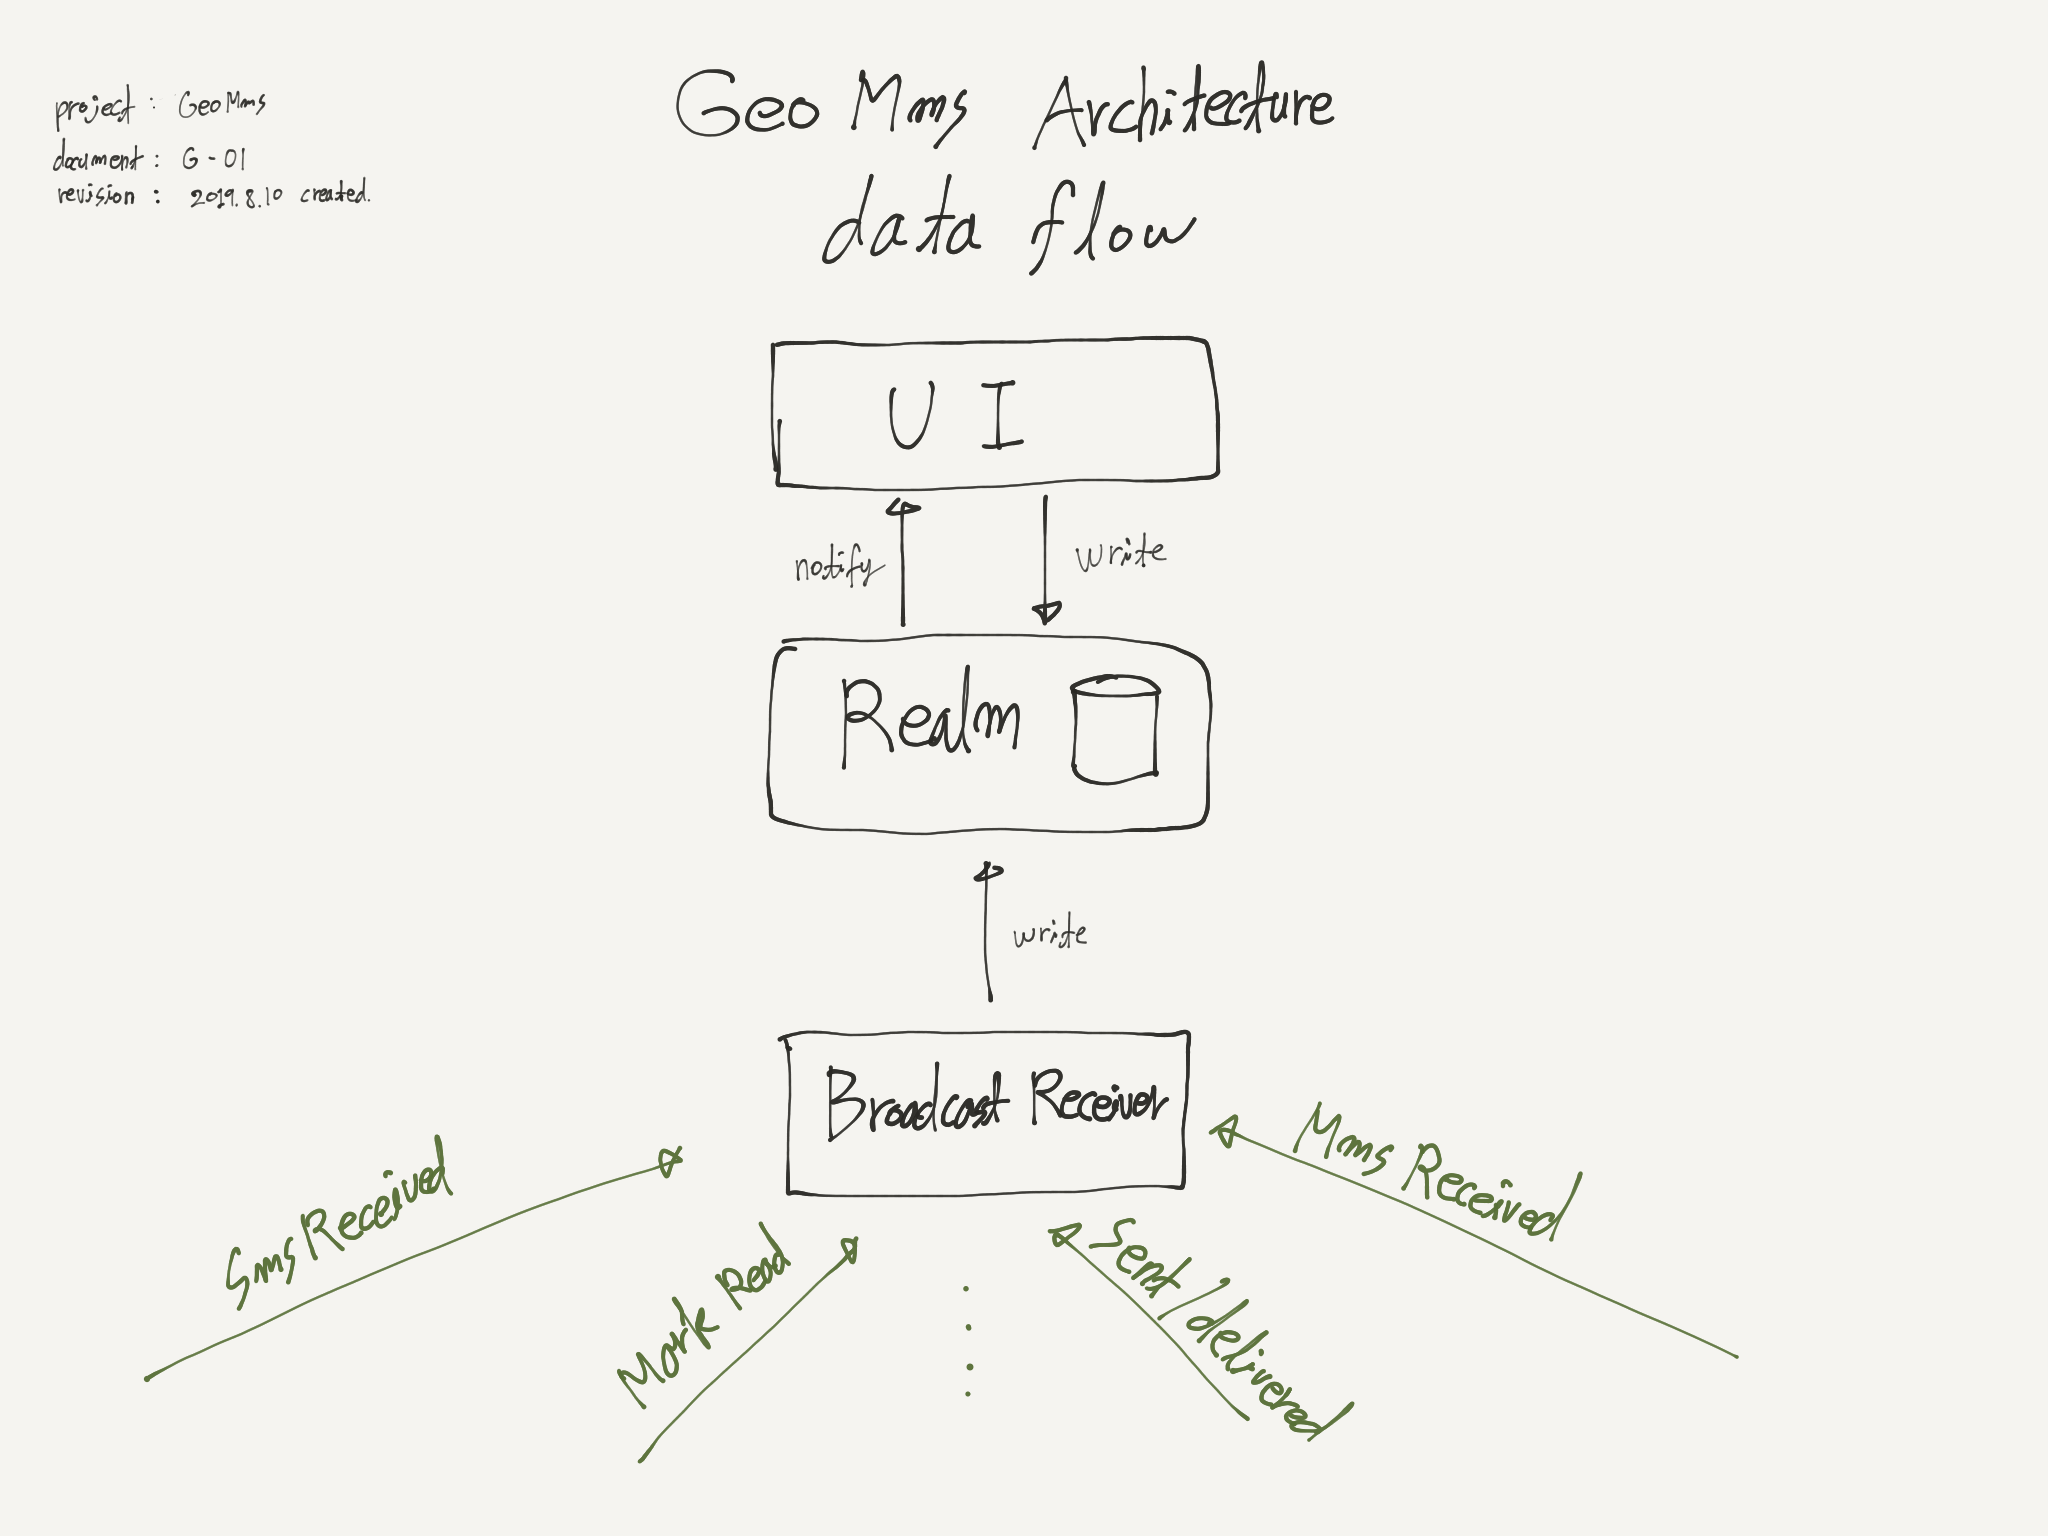 project : GeoMms
document : G - 01
revision : 2019.8.10 created.
Geo Mms Architecture
data flow
UI
notify
write
Realm
write
Broadcast Receiver
Sms Received
Mark Read
Sent/delivered
Mms Received